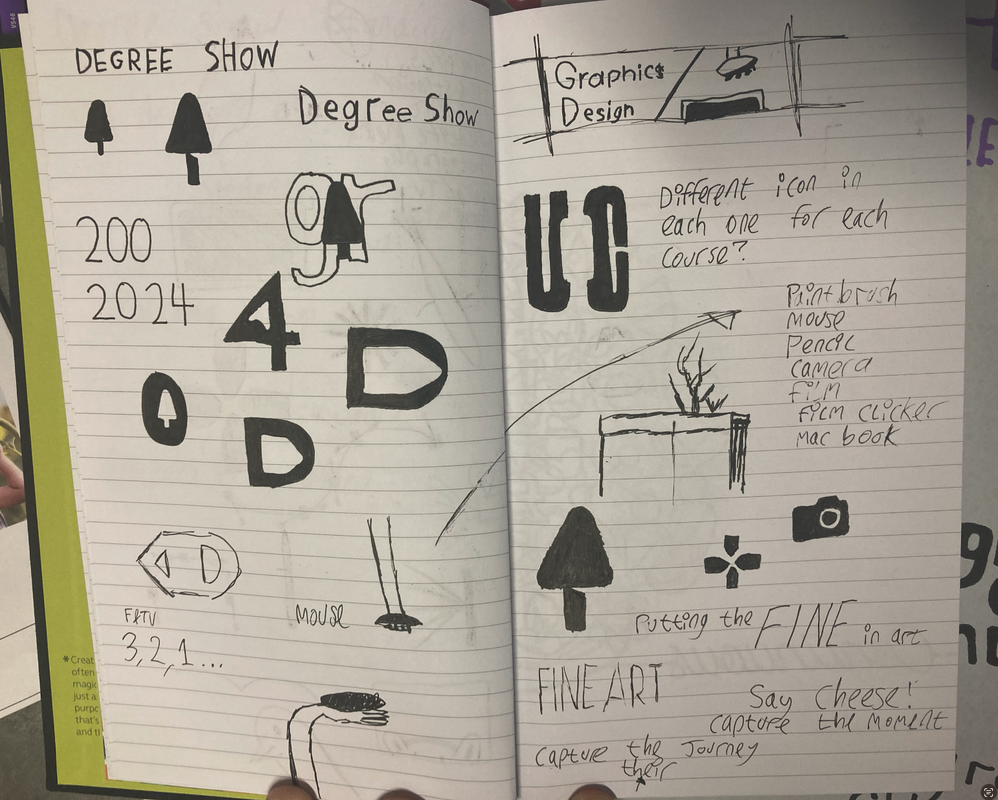 DEGREE SHOW
Degree Show
gr
200
2024
4
D
D
D
F&TV
3,2,1...
Mouse
Graphics
Design
UC
Different icon in
each one for each
course?
Paintbrush
Mouse
Pencil
Camera
film
film clicker
Mac book
Putting the FINE in art
FINE ART
Say Cheese!
capture the moment
capture the Journey
their
*Creat
often
magic
just a
purpo
that's
and t
VS48